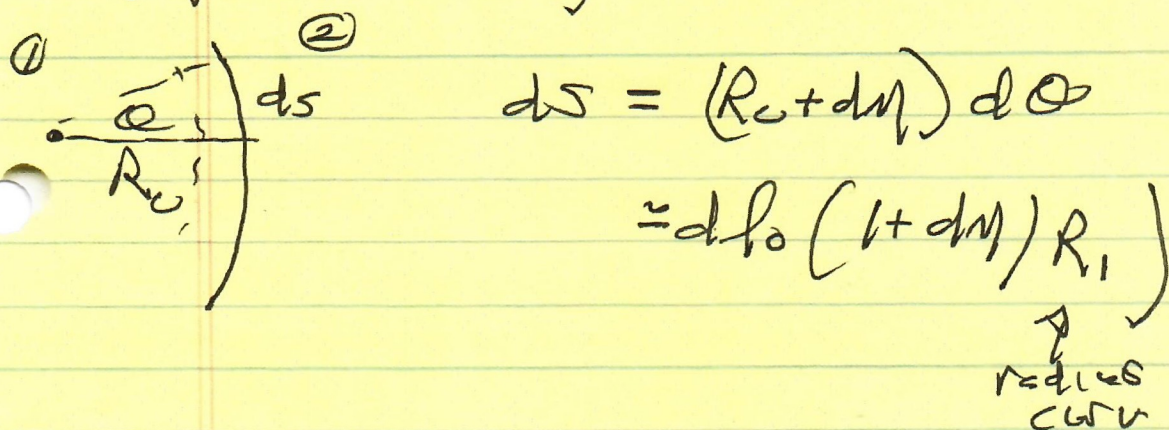 ① ②
θ ds
R_c
ds = (R_c + dη) dθ
≃ dl_0 (1 + dη / R_1)
↑
radius
curv